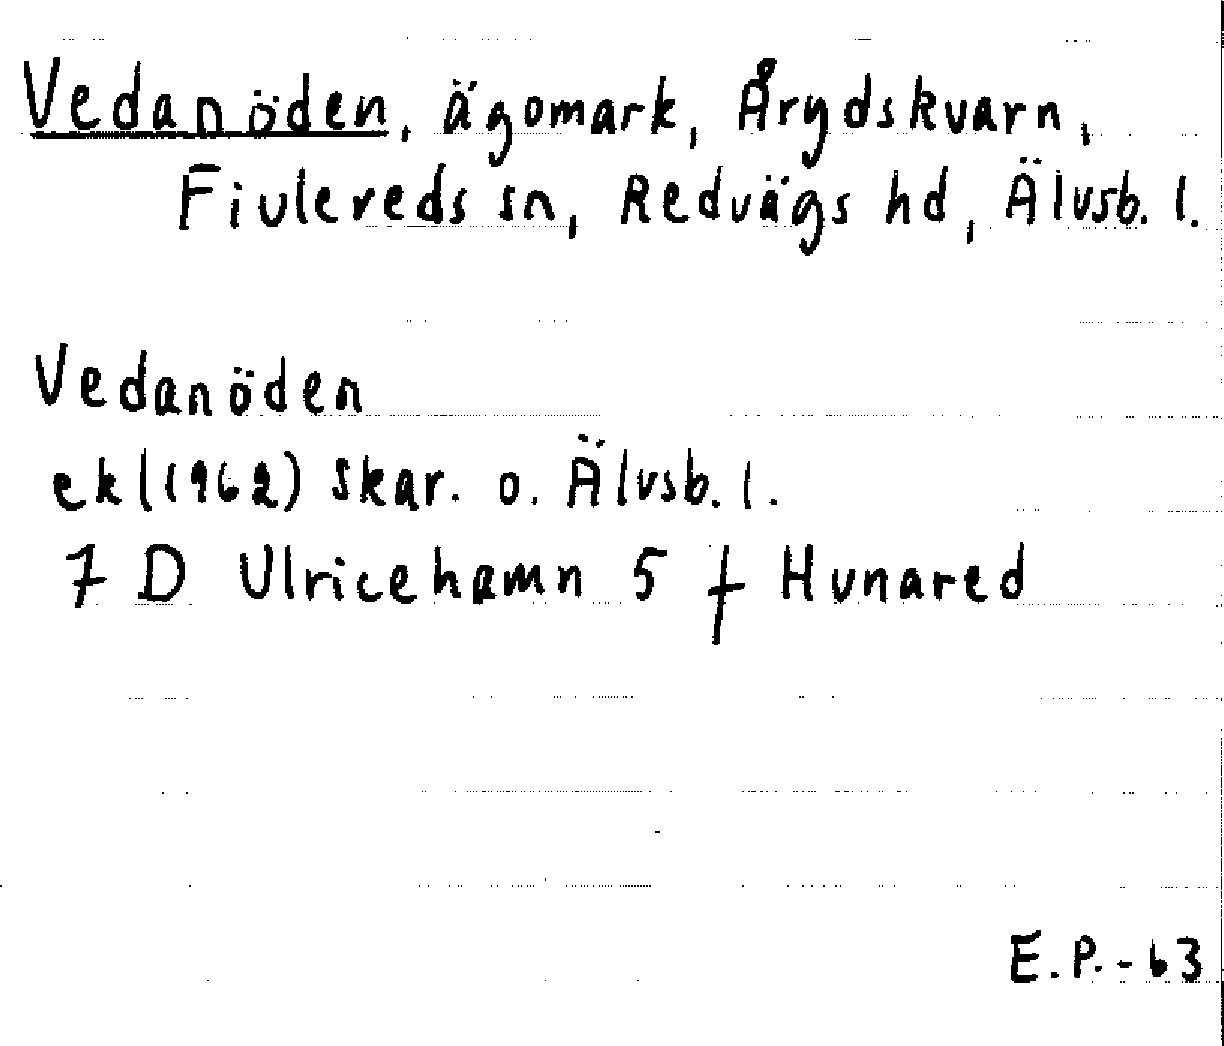 Vedanöden, ägomark, Årydskvarn,
Fivlereds sn, Redvägs hd, Älvsb. l.
Vedanöden
ekl (1962) Skar. o. Älvsb. l.
7 D Ulricehamn 5 f Hunared
E.P.-63